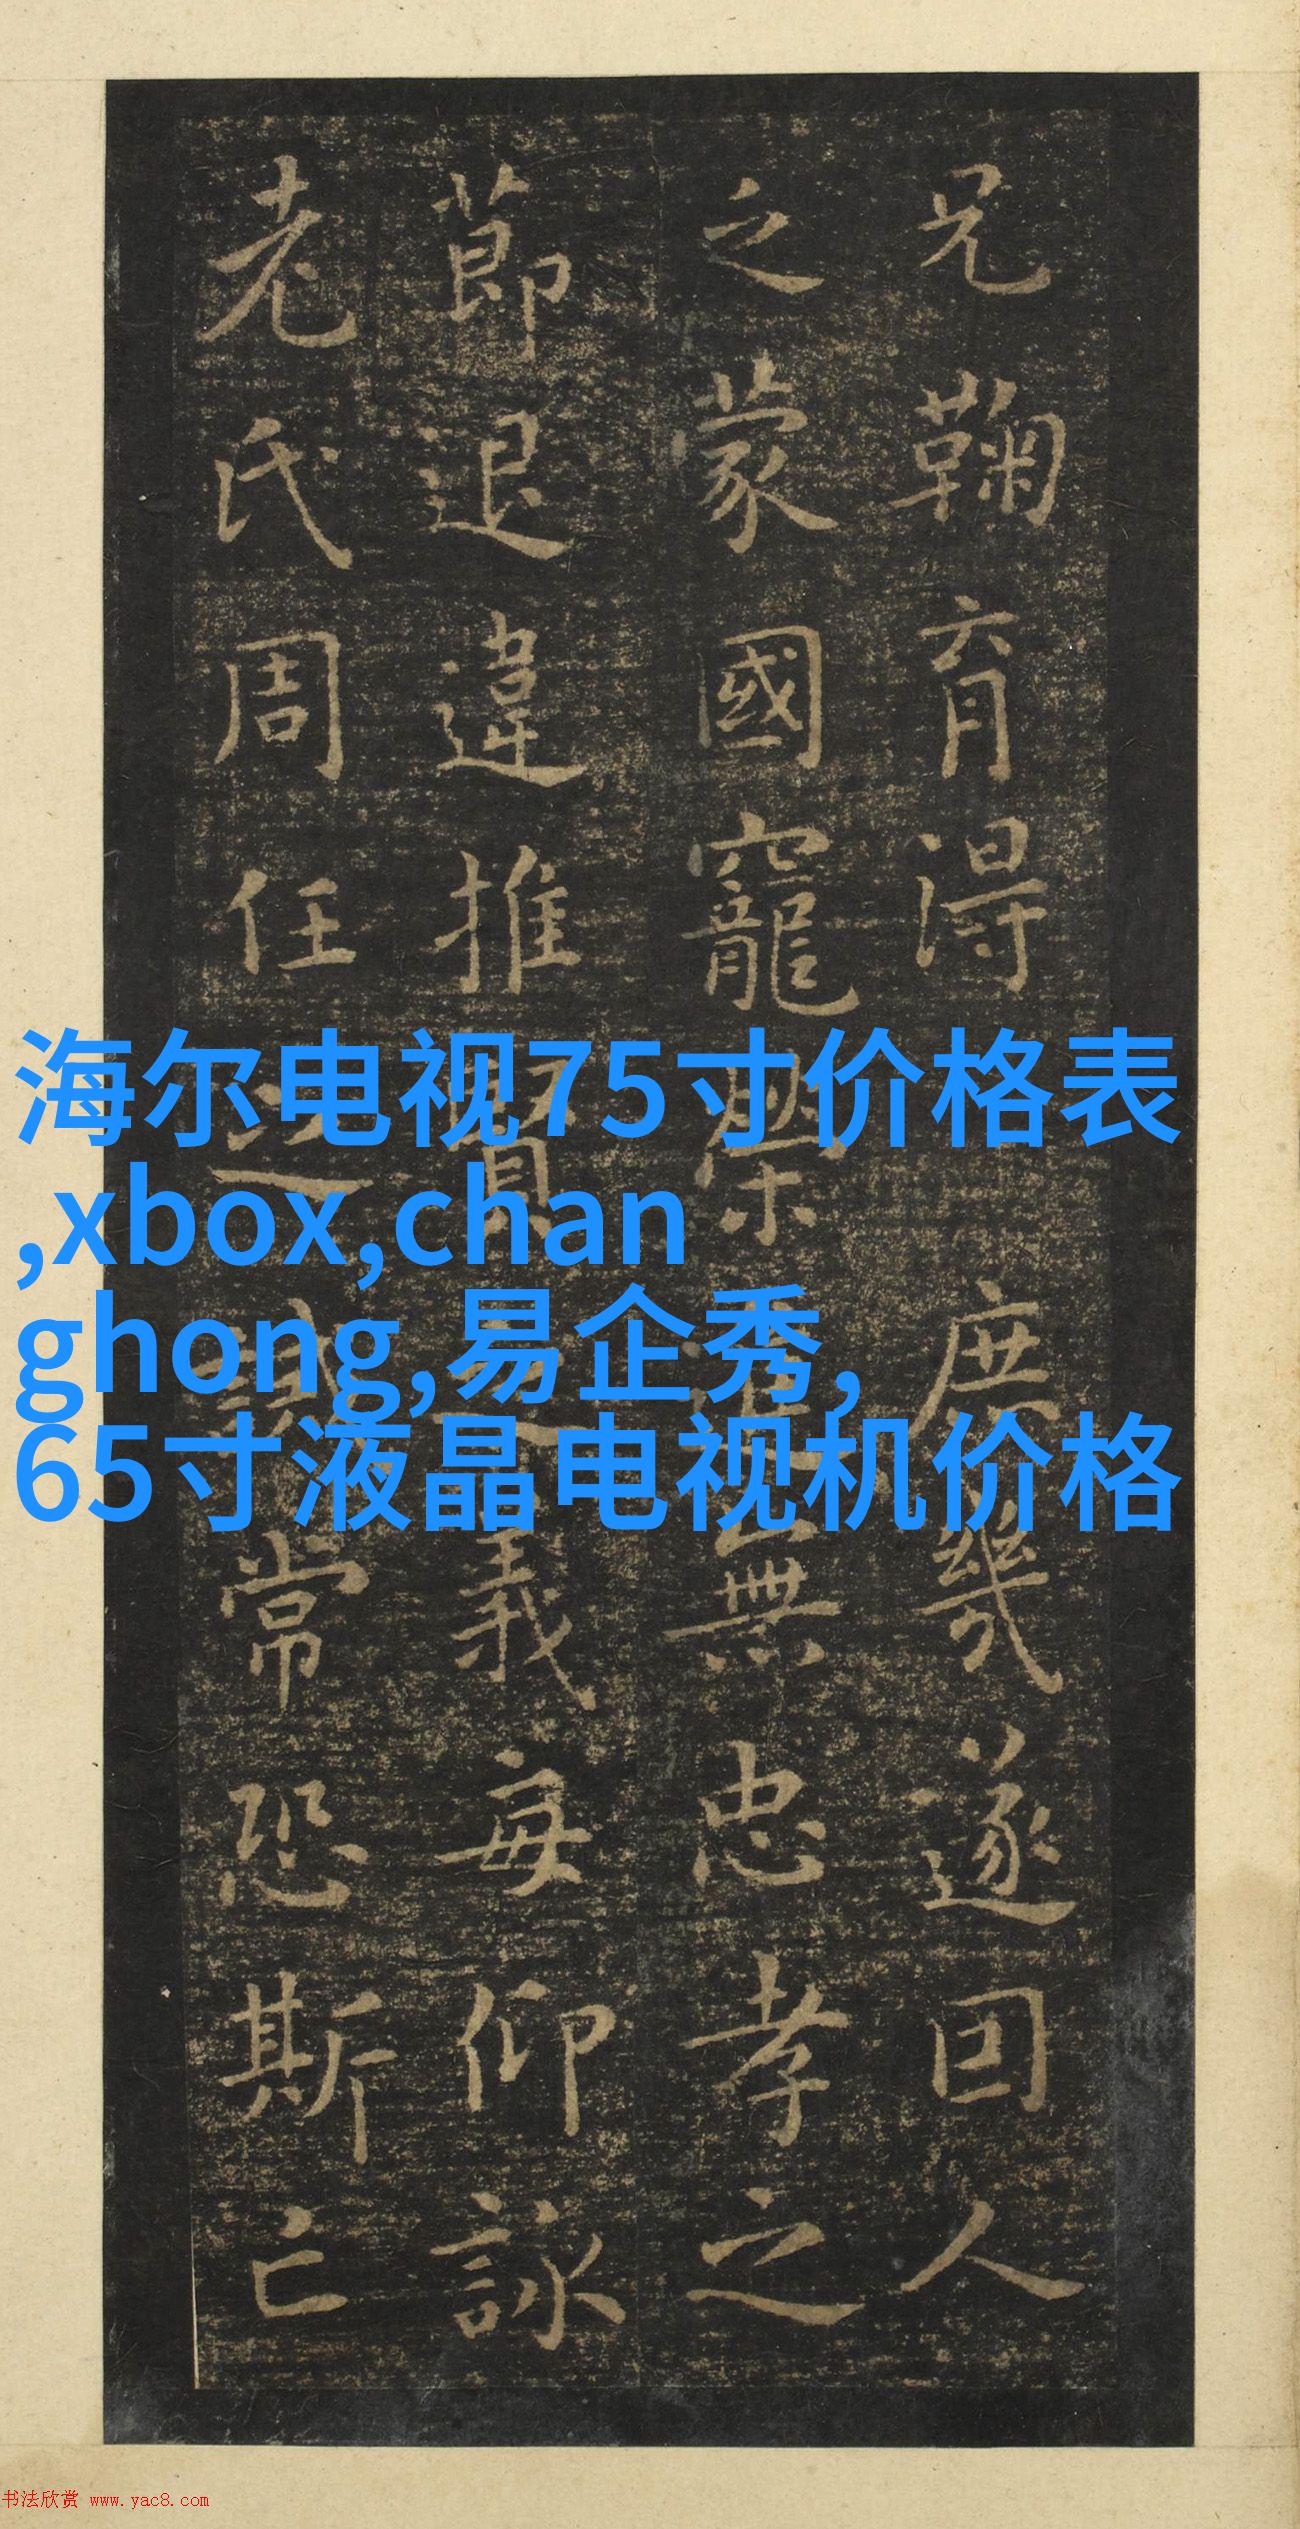 兄鞠育淂庶幾遂回人
之蒙國寵榮無忠孝之
莭退違推賢義每仰詠
老氏周任之常恐斯亡
海尔电视75寸价格表
,xbox,chan
ghong,易企秀,
65寸液晶电视机价格
书法欣赏 www.yac8.com